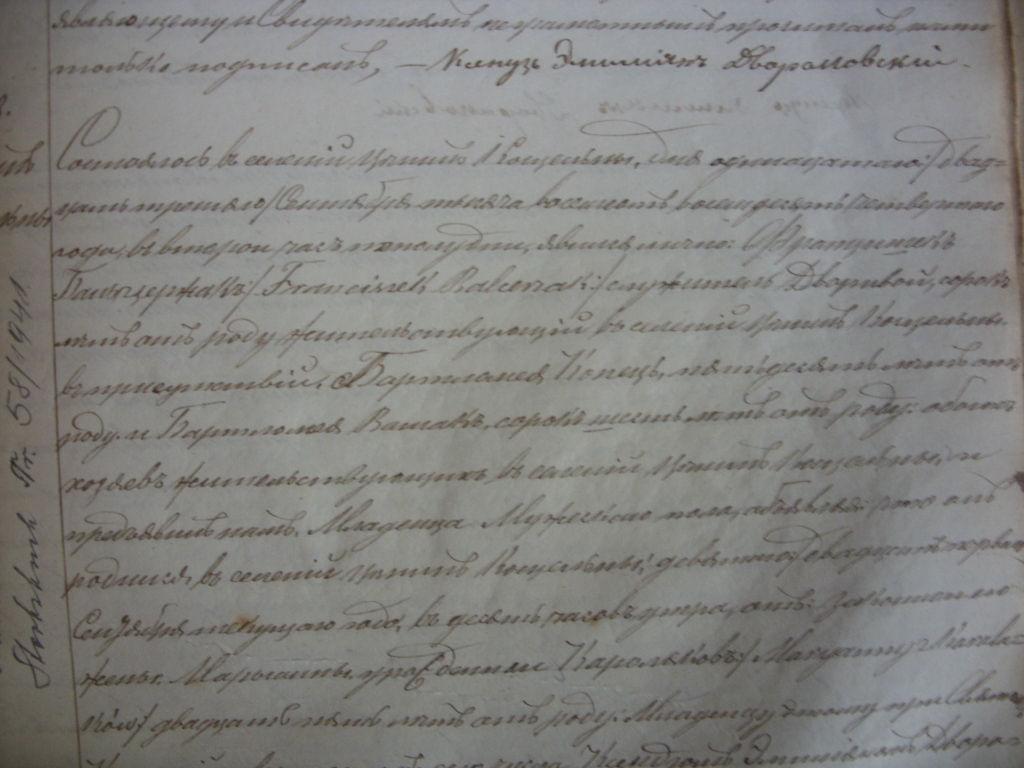 являющему и Свидѣтелямъ неграмотнымъ прочитанъ нами
только подписанъ, — Ксендзъ Эмиліянъ Двораковскій
Состоялось въ селеніи Кощельны, дня одинадцатаго / двад-
цать третяго / Сентября тысяча восемсотъ восемдесятъ четвертаго
года, въ второй часъ пополудни, явился лично: Францишекъ
Бальцержакъ / Franciszek Balcerzak / служитель Дворовой, сорокъ
лѣтъ отъ роду жительствующій въ селеніи Кощельны
въ присутствіи, Бартломея Копецъ, пятьдесятъ лѣтъ отъ
роду и Бартломея Вашакъ, сорокъ шесть лѣтъ отъ роду: обоихъ
хозяевъ жительствующихъ въ селеніи Кощельны, и
предъявилъ намъ Младенца Мужескаго пола, объявляя что онъ
родился въ селеніи Кощельны: девятаго / двадцать перваго
Сентября текущаго года, въ десять часовъ утра, отъ законной его
жены Марыанны урожденной Кароляковъ / Maryanny z Karola-
ków / двадцать пять лѣтъ отъ роду: Младенцу этому при Святомъ
Ксендзомъ Эмиліяномъ Двора-
58/1941